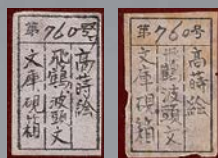 第760号
高蒔絵
飛鶴波頭文
文庫硯箱
第760号
高蒔絵
飛鶴波頭文
文庫硯箱